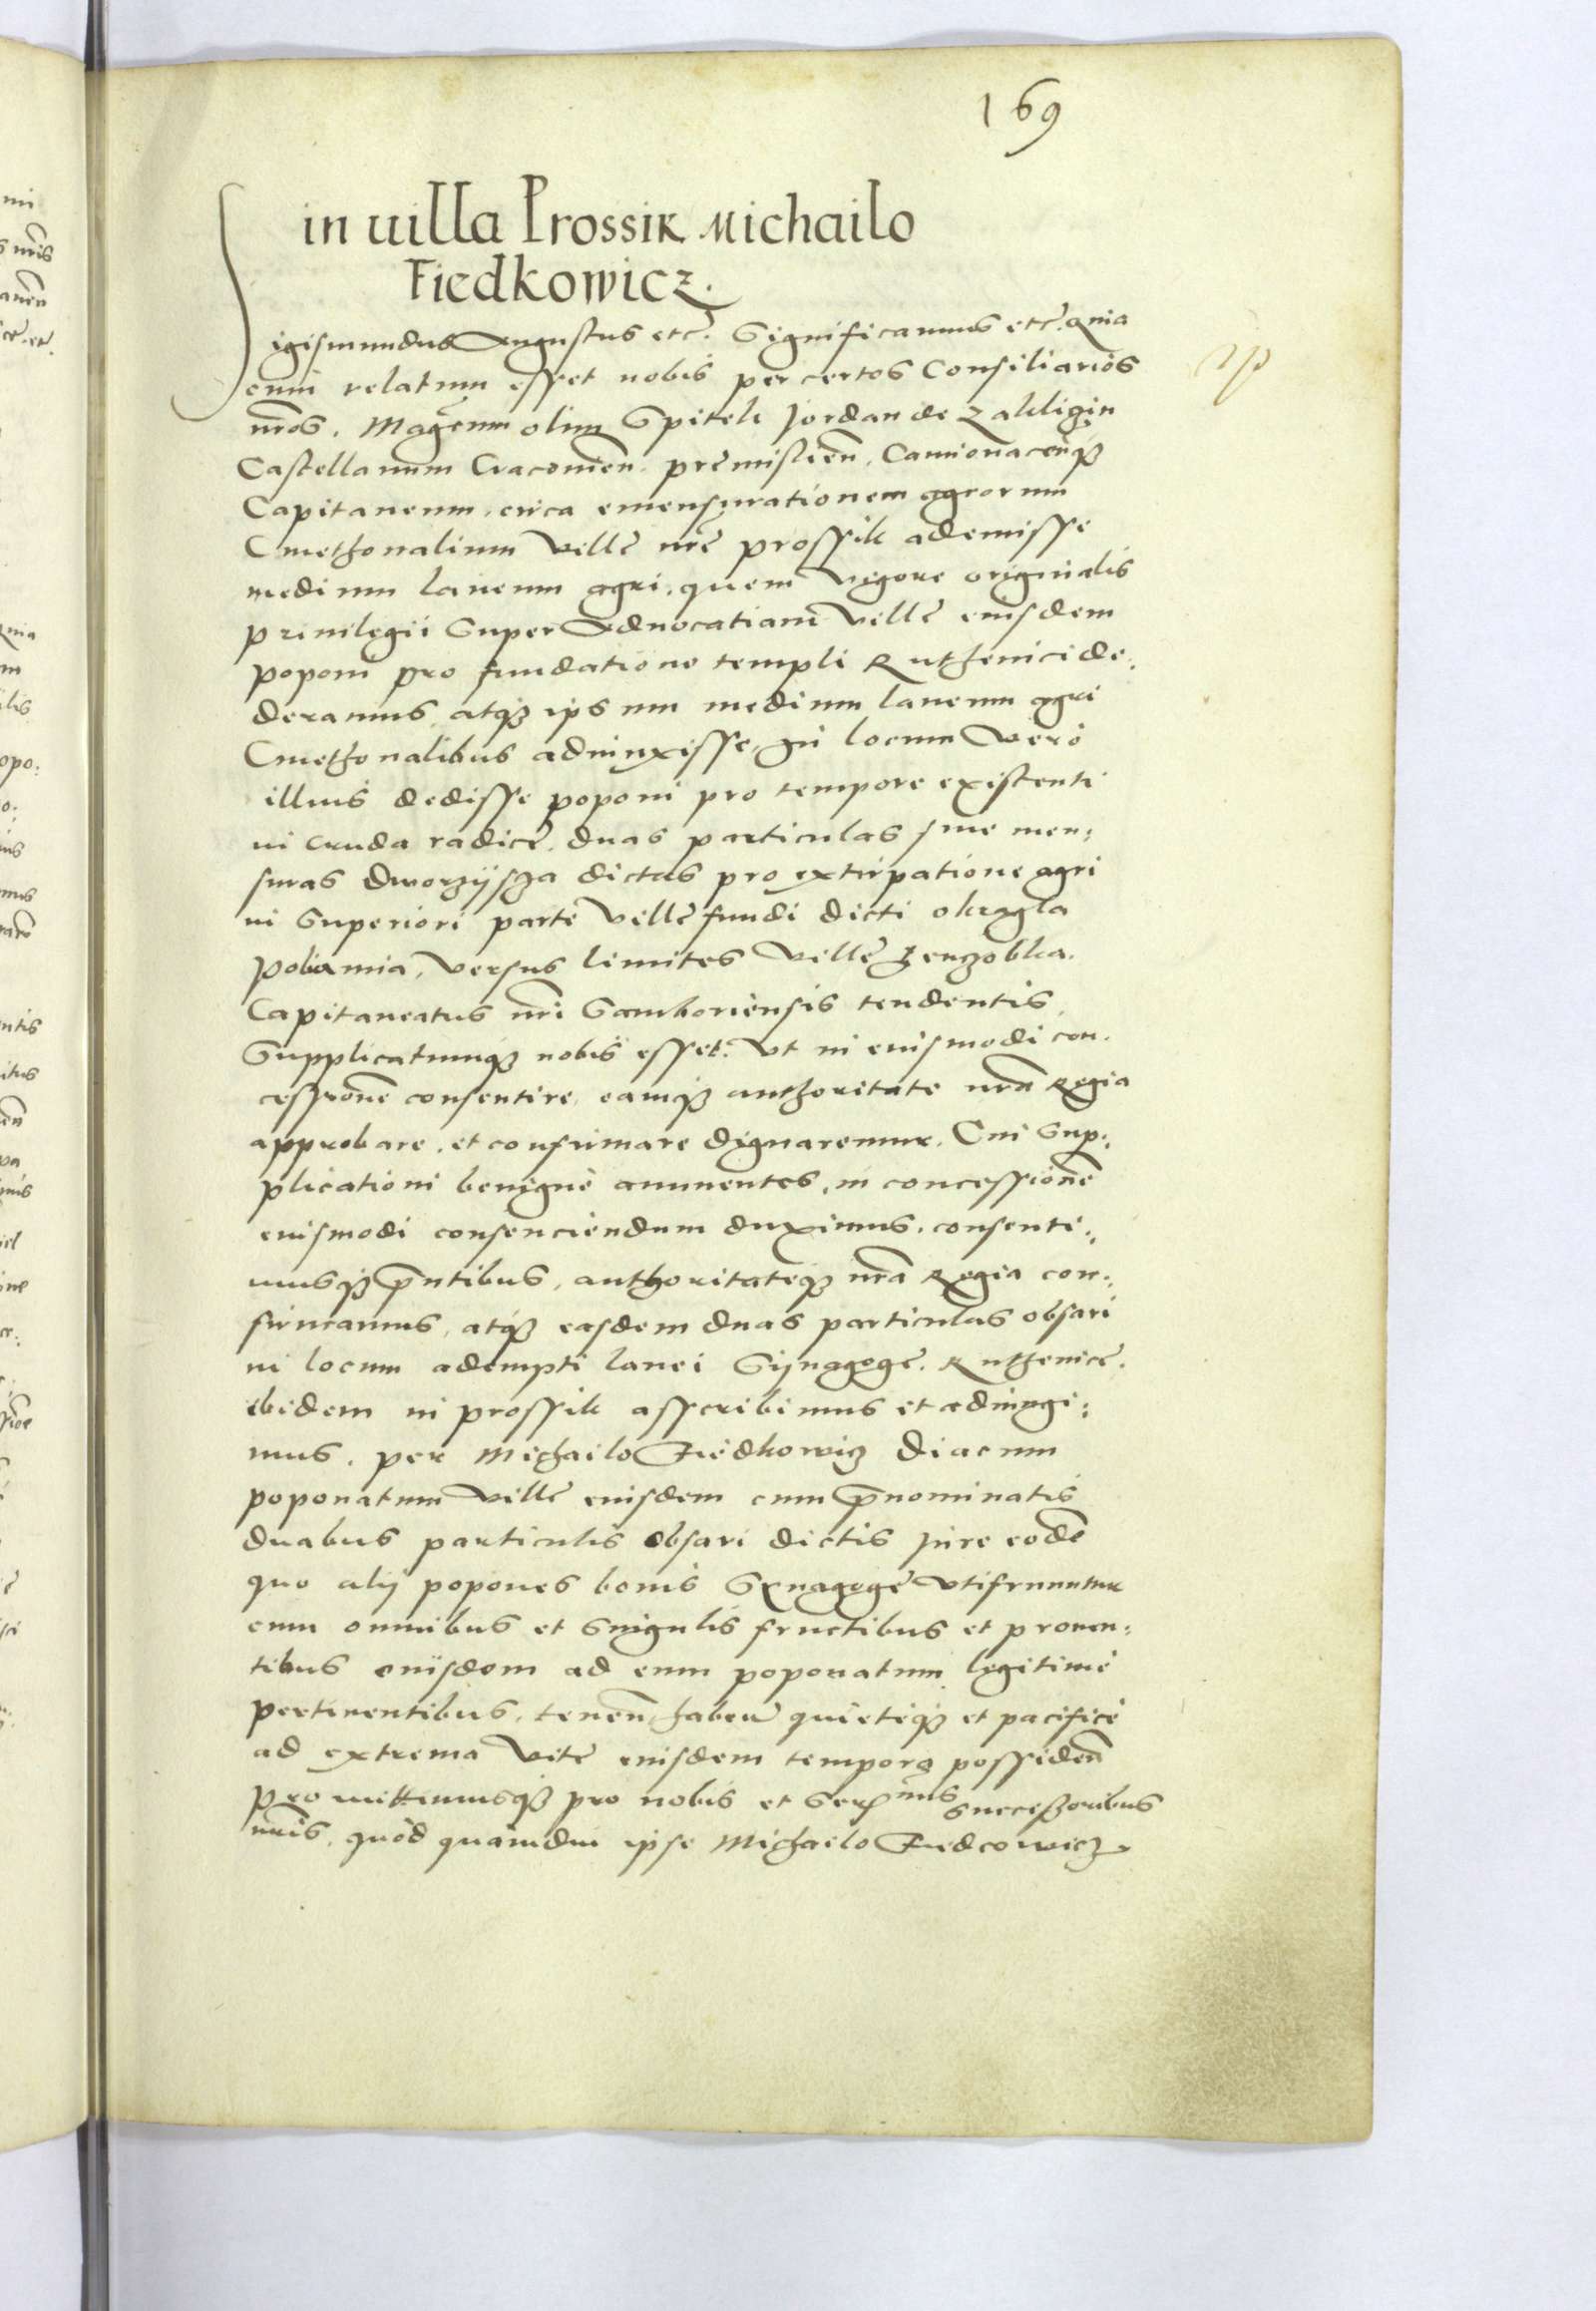 169
in uilla Prossik Michailo
Fiedkowicz.
Sigismundus Augustus etc̃. Significamus etc̃. Quia
cum relatum esset nobis per certos Consiliarios
nr̃os. Magcum olim Spitek Jordan de Zakligin
Castellanum Cracouien̄. premislien̄. Camionacenq̃
Capitaneum, circa emensurationem agrorum
Cmethonalium Villę nrę prossik ademisse
medium laneum agri, quem vigore originalis
priuilegii super Aduocatiam Villę eiusdem
poponi pro fundatione templi Ruthenici de:
deramus, atq̃ ipsum medium laneum agri
Cmethonalibus adiunxisse, In locum vero
illius dedisse poponi pro tempore existenti
in cruda radicę. duas particulas siue men:
suras dworzijsza dictas pro extirpatione agri
in superiori parte Villę fundi dicti okragla
poliamia, versus limites Villę
Capitaneatus nr̃i Samboriensis tendentis,
Supplicatumq̃ nobis esset. Vt in eiusmodi con:
cessionē consentire, eamq̃ authoritate nr̃a Regia
approbare, et confirmare dignaremur. Cui sup:
plicationi benigne annuentes, in concessionē
eiusmodi consenciendum duximus, consenti:
musq̃ p̄ntibus, authoritateq̃ nr̃a Regia con:
firmamus, atq̃ easdem duas particulas obsari
in locum adempti lanei Sijnagogę. Ruthenicę.
ibidem in prossik asscribimus et adiungi:
mus, per Michailo Fiedkowicz diacum
poponatum Villę eiusdem cum p̄nominatis
duabus particulis obsari dictis jure eodē
quo alij popones bonis Synagogę vtifruuntur
cum omnibus et singulis fructibus et prouen:
tibus eiusdem ad eum poponatum legitime
pertinentibus, tenen̄ haben̄ quieteq̃ et pacifice
ad extrema vitę eiusdem tempora possiden̄
promittimusq̃ pro nobis et Ser̃mis successoribus
nr̃is, quod quamdiu ipse Michailo Fiedcowicz